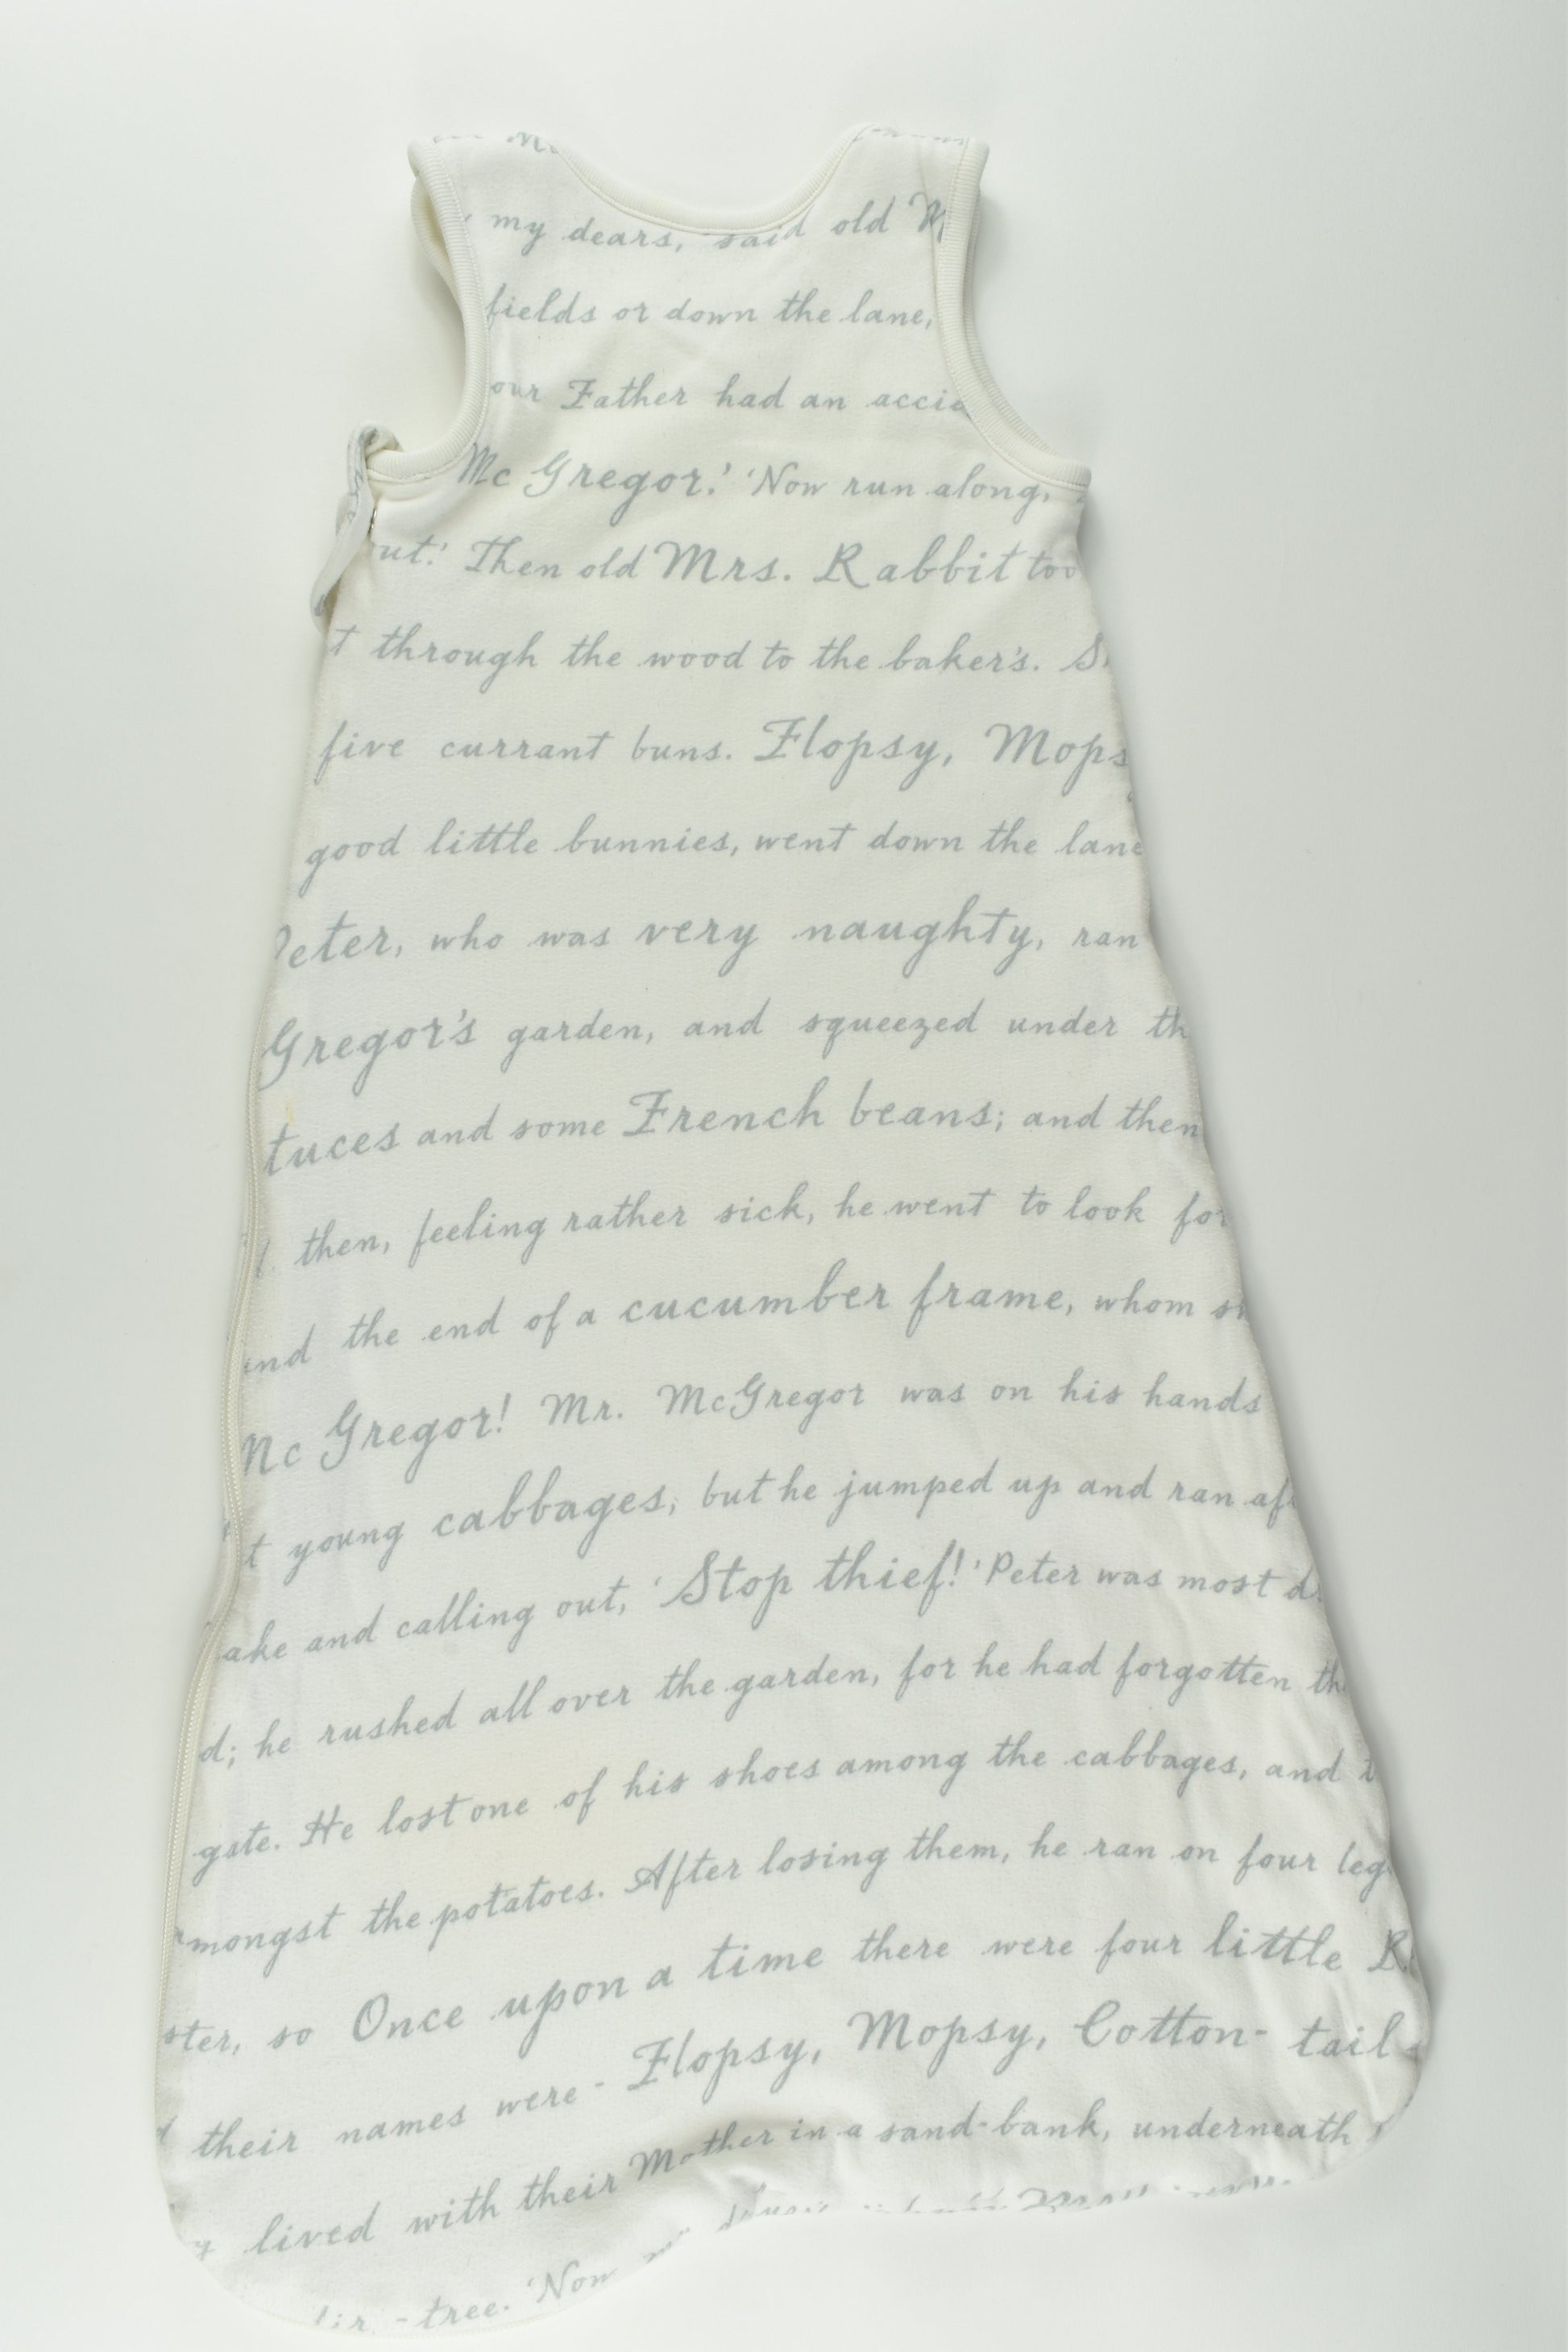 my dears, said old
fields or down the lane,
our Father had an
Mc Gregor.' 'Now run along,
Then old Mrs. Rabbit
through the wood to the baker's.
five currant buns. Flopsy,
good little bunnies, went down the lane
Peter, who was very naughty, ran
Gregor's garden, and squeezed under
tuces and some French beans; and then
then, feeling rather sick, he went to look for
the end of a cucumber frame, whom
Mc Gregor! Mr. McGregor was on his hands
young cabbages, but he jumped up and ran
ake and calling out, 'Stop thief!' Peter was most
d; he rushed all over the garden, for he had forgotten
gate. He lost one of his shoes among the cabbages, and
mongst the potatoes. After losing them, he ran on four leg
ster, so Once upon a time there were four little
their names were - Flopsy, Mopsy, Cotton- tail
lived with their Mother in a sand-bank, underneath
-tree. 'Now